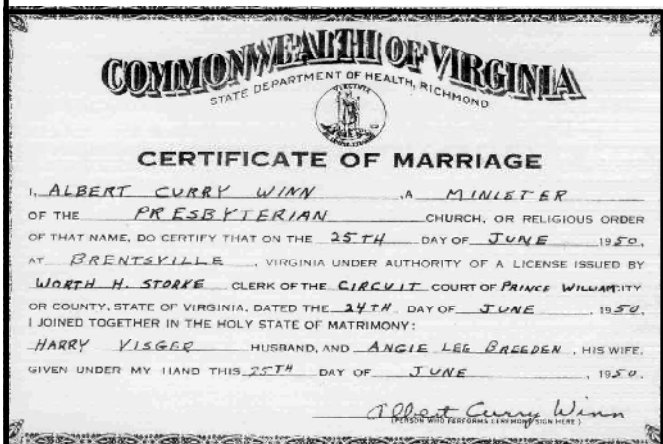 COMMONWEALTH OF VIRGINIA
STATE DEPARTMENT OF HEALTH, RICHMOND
VIRGINIA
CERTIFICATE OF MARRIAGE
I, ALBERT CURRY WINN , A MINISTER
OF THE PRESBYTERIAN CHURCH, OR RELIGIOUS ORDER
OF THAT NAME, DO CERTIFY THAT ON THE 25TH DAY OF JUNE , 1950,
AT BRENTSVILLE , VIRGINIA UNDER AUTHORITY OF A LICENSE ISSUED BY
WORTH H. STORKE CLERK OF THE CIRCUIT COURT OF PRINCE WILLIAM CITY
OR COUNTY, STATE OF VIRGINIA, DATED THE 24TH DAY OF JUNE , 1950,
I JOINED TOGETHER IN THE HOLY STATE OF MATRIMONY:
HARRY VISGER HUSBAND, AND ANGIE LEE BREEDEN , HIS WIFE.
GIVEN UNDER MY HAND THIS 25TH DAY OF JUNE , 1950.
Albert Curry Winn
(PERSON WHO PERFORMS CEREMONY SIGN HERE)